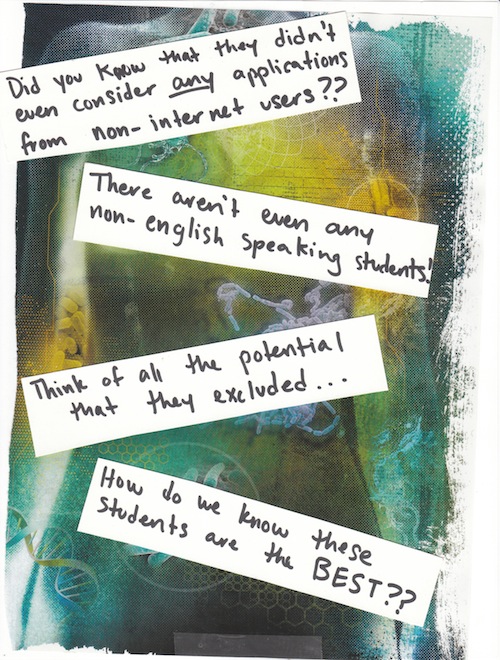 Did you know that they didn't
even consider any applications
from non-internet users??
There aren't even any
non-english speaking students!
Think of all the potential
that they excluded...
How do we know these
students are the BEST??